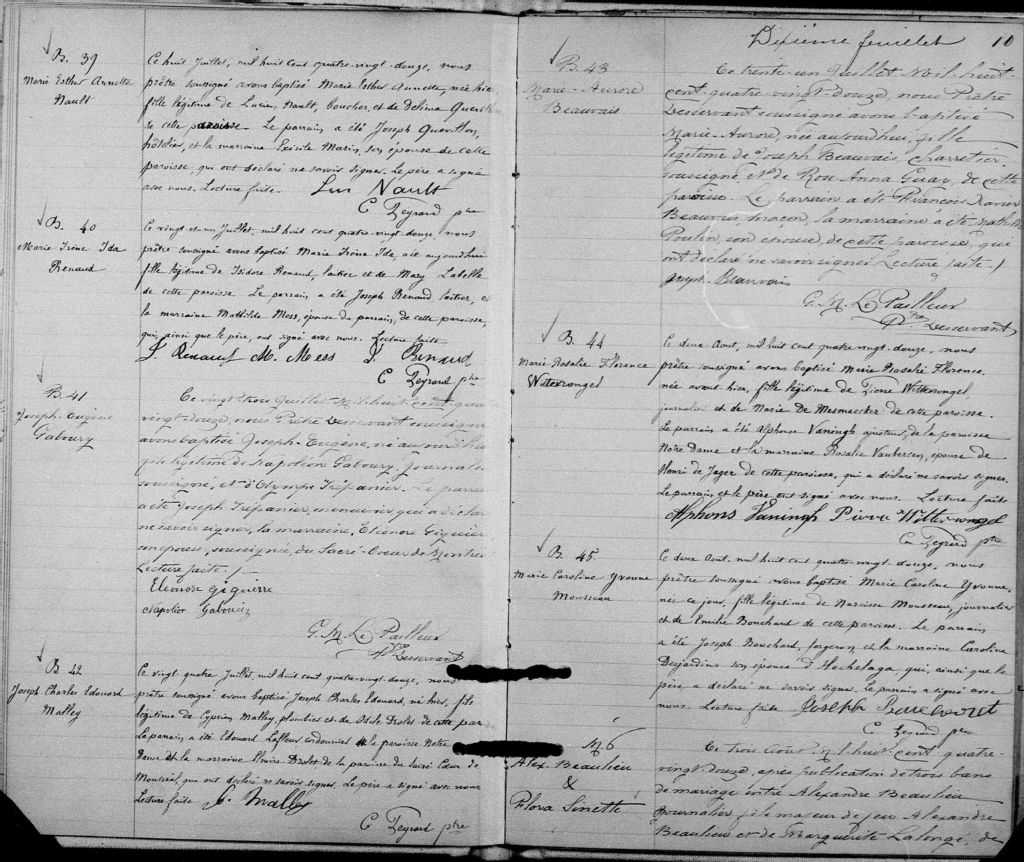 B. 39
Marie Esther Annette
Nault
Ce huit Juillet, mil huit cent quatre-vingt-douze, nous
prêtre soussigné avons baptisé Marie Esther Annette, née hier
fille légitime de Lucien Nault, boucher, et de Délima
de cette paroisse. Le parrain a été Joseph
hôtelier, et la marraine Exivite Marin, son épouse de cette
paroisse, qui ont déclaré ne savoir signer. Le père a signé
avec nous. Lecture faite. Nault
C Peyrard ptre
B. 40
Marie Irène Ida
Renaud
Ce vingt et un Juillet, mil huit cent quatre-vingt-douze, nous
prêtre soussigné avons baptisé Marie Irène Ida, née aujourd'hui
fille légitime de Isidore Renaud, laitier et de Mary Labelle
de cette paroisse. Le parrain a été Joseph Renaud laitier, et
la marraine Mathilde Mess, épouse du parrain, de cette paroisse,
qui, ainsi que le père, ont signé avec nous. Lecture faite
J. Renaud M. Mess I. Renaud
C Peyrard ptre
B. 41
Joseph-Eugène
Gaboury
Ce vingt trois Juillet Mil huit cent quatre
vingt-douze, nous Prêtre Desservant soussigné
avons baptisé Joseph-Eugène, né aujourd'hui
fils légitime de Napoléon Gaboury, Journalier
soussigné, et d'Olympe Trépanier. Le parrain
a été Joseph Trépanier, menuisier, qui a déclaré
ne savoir signer, la marraine, Eléonore Giguier
son épouse, soussignée, du Sacré-Coeur de Montréal
Lecture faite. /
Eleonore giguierre
Napolion Gabouriz
G. M. Le Pailleur
Ptre Desservant
B. 42
Joseph Charles Edouard
Malley
Ce vingt quatre Juillet, mil huit cent quatre-vingt-douze, nous
prêtre soussigné avons baptisé Joseph Charles Edouard, né hier, fils
légitime de Cyprien Malley, plombier et de Odile Drolet de cette par.
Le parrain a été Edouard Lafleur cordonnier de la paroisse Notre
Dame et la marraine Elmire Drolet de la paroisse du Sacré Coeur de
Montréal, qui ont déclaré ne savoir signer. Le père a signé avec nous
Lecture faite C. Malley
C Peyrard ptre
Dixième feuillet 10
B. 43
Marie-Aurore
Beauvais
Ce trente-un Juillet Mil-huit-
cent-quatre-vingt-douze, nous Prêtre
Desservant soussigné avons baptisé
Marie-Aurore, née aujourd'hui, fille
légitime de Joseph Beauvais, Charretier,
soussigné, et de Rose Anna Guay, de cette
paroisse. Le parrain a été François Xavier
Beauvais, maçon, la marraine a été
Poulin, son épouse, de cette paroisse, qui
ont déclaré ne savoir signer. Lecture faite. /
Joseph Beauvais
G. M. Le Pailleur
Ptre Desservant
B. 44
Marie Rosalie Florence
Witterongel
Ce deux Aout, mil huit cent quatre-vingt-douze, nous
prêtre soussigné avons baptisé Marie Rosalie Florence
née avant hier, fille légitime de Pierre Witterongel,
journalier et de Marie De Mesmaecker de cette paroisse.
Le parrain a été Alphonse Vaningh ajusteur, de la paroisse
Notre Dame et la marraine Rosalie Vanbercen, épouse de
Henri de Jager de cette paroisse, qui a déclaré ne savoir signer.
Le parrain et le père ont signé avec nous. Lecture faite
Alphons Vaningh Pierre Witterongel
C Peyrard ptre
B. 45
Marie Caroline Yvonne
Mousseau
Ce deux Aout, mil huit cent quatre-vingt-douze, nous
prêtre soussigné avons baptisé Marie Caroline Yvonne,
née ce jour, fille légitime de Narcisse Mousseau, journalier
et de Emilie Bouchard de cette paroisse. Le parrain
a été Joseph Bouchard, forgeron et la marraine Caroline
Desjardins son épouse d'Hochelaga qui, ainsi que le
père a déclaré ne savoir signer. Le parrain a signé avec
nous. Lecture faite Joseph
C Peyrard ptre
M6
Alex. Beaulieu
&
Flora Sinette
Ce trois Aout Mil huit cent quatre-
vingt-douze, après publication de trois bans
de mariage entre Alexandre Beaulieu
Journalier fils majeur de feu Alexandre
Beaulieu et de Marguerite Lalongé, de